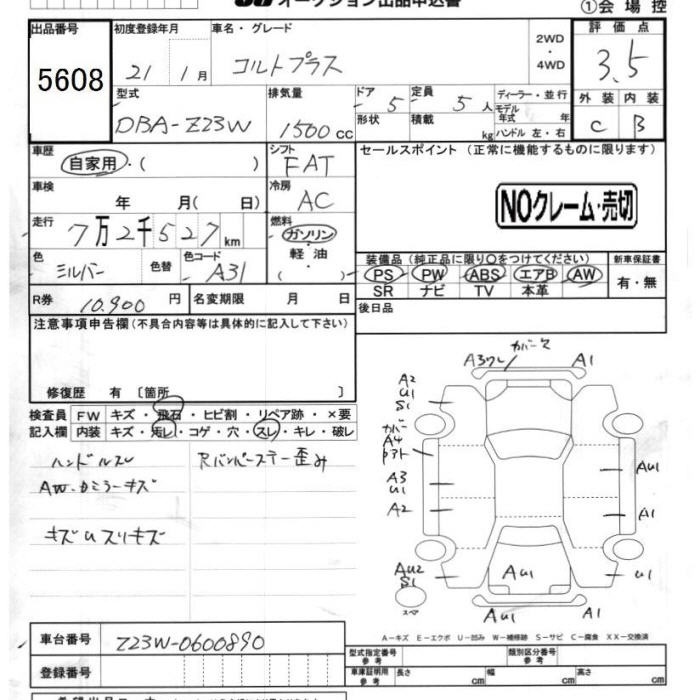 オークション出品申込書
①会場控
出品番号 初度登録年月 車名・グレード 2WD ・ 4WD 評価点
5608 21 1月 コルトプラス 3.5
型式 排気量 ドア 5 定員 5人 ディーラー・並行 外装 内装
DBA-Z23W 1500cc 形状 積載 kg モデル年式 年 C B
ハンドル 左・右
車歴 自家用・( ) シフト FAT セールスポイント (正常に機能するものに限ります)
車検 年 月( 日) 冷房 AC
NOクレーム・売切
走行 7万2千527km 燃料 ガソリン・軽油・( )
色 シルバー 色替 色コード A31 装備品 (純正品に限り○をつけてください) 新車保証書
PS PW ABS エアB AW 有・無
SR ナビ TV 本革
R券 10,900円 名変期限 月 日 後日品
注意事項申告欄(不具合内容等は具体的に記入して下さい)
修復歴 有 〔箇所 〕
検査員 FW キズ・飛石・ヒビ割・リペア跡・×要
記入欄 内装 キズ・汚レ・コゲ・穴・スレ・キレ・破レ
ハンドルスレ Rバンパーステー歪み
AW・カミラーキズ
キズUスリキズ
A1
A2
U1
S1
A4
A3
U1
AU1
A2
A1
AU2
S1
AU1
U1
スペ
AU1
A1
A-キズ E-エクボ U-凹み W-補修跡 S-サビ C-腐食 XX-交換済
車台番号 Z23W-0600890
型式指定番号 参考 類別区分番号 参考
登録番号 車庫証明用 参考 長さ cm 幅 cm 高さ cm